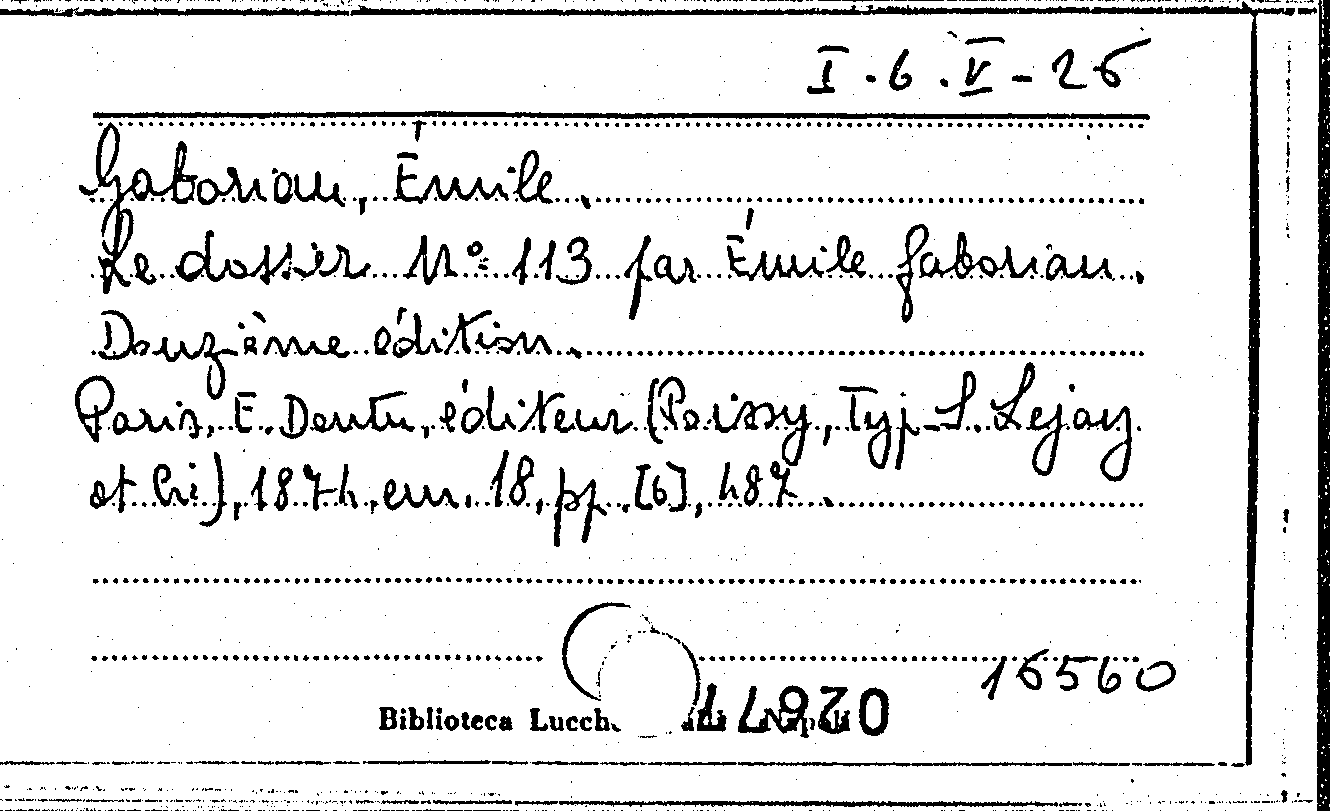 I.6.V-26
Gaboriau, Émile.
Le dossier N° 113 par Émile Gaboriau.
Douzième édition.
Paris, E. Dentu, éditeur (Poissy, Typ. S. Lejay
et Cie), 1874, em. 18, pp. [6], 487.
16560
Biblioteca Lucch